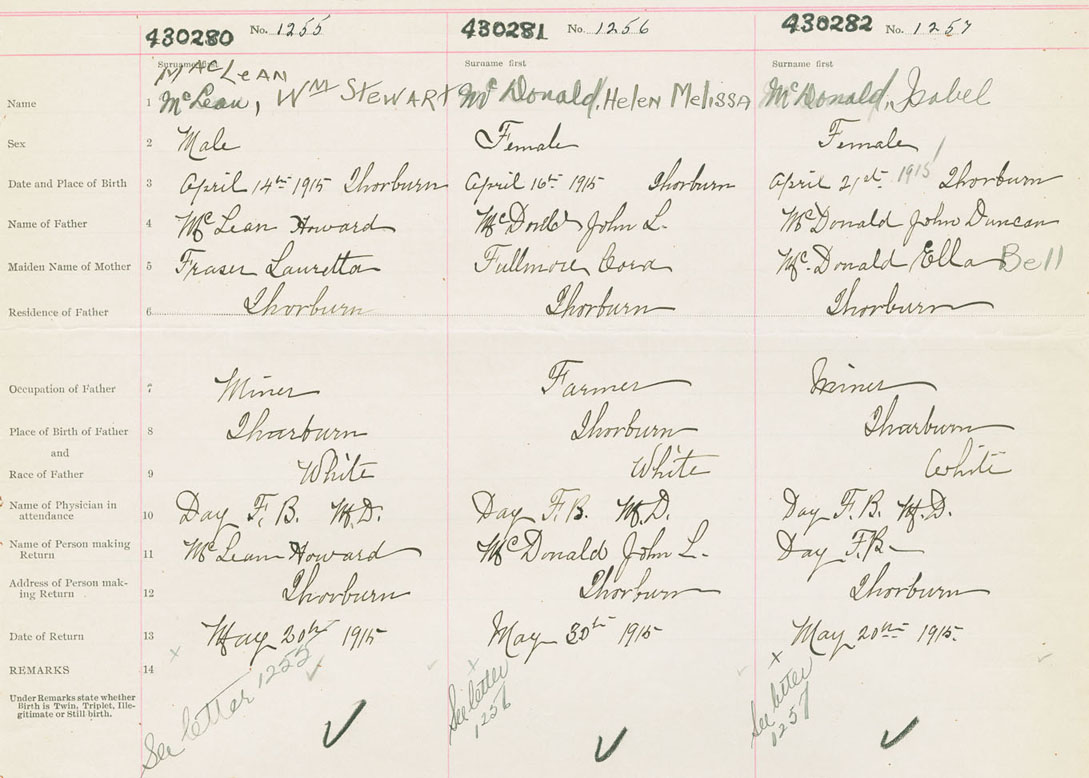 430280 No. 1255 430281 No. 1256 430282 No. 1257
Surname first Surname first Surname first
MacLean
Name 1 McLean, Wm Stewart McDonald, Helen Melissa McDonald, Isabel
Sex 2 Male Female Female
Date and Place of Birth 3 April 14th 1915 Thorburn April 16th 1915 Thorburn April 21st 1915 Thorburn
Name of Father 4 McLean Howard McDonald John L. McDonald John Duncan
Maiden Name of Mother 5 Fraser Lauretta Fullmore Cora McDonald Ella Bell
Residence of Father 6 Thorburn Thorburn Thorburn
Occupation of Father 7 Miner Farmer Miner
Place of Birth of Father 8 Thorburn Thorburn Thorburn
and
Race of Father 9 White White White
Name of Physician in
attendance 10 Day F. B. M.D. Day F. B. M.D. Day F. B. M.D.
Name of Person making
Return 11 McLean Howard McDonald John L. Day F. B.
Address of Person mak-
ing Return 12 Thorburn Thorburn Thorburn
Date of Return 13 May 20th 1915 May 30th 1915 May 20th 1915.
REMARKS 14
Under Remarks state whether
Birth is Twin, Triplet, Ille-
gitimate or Still birth.
See letter 1255
See letter
1256
See letter
1257